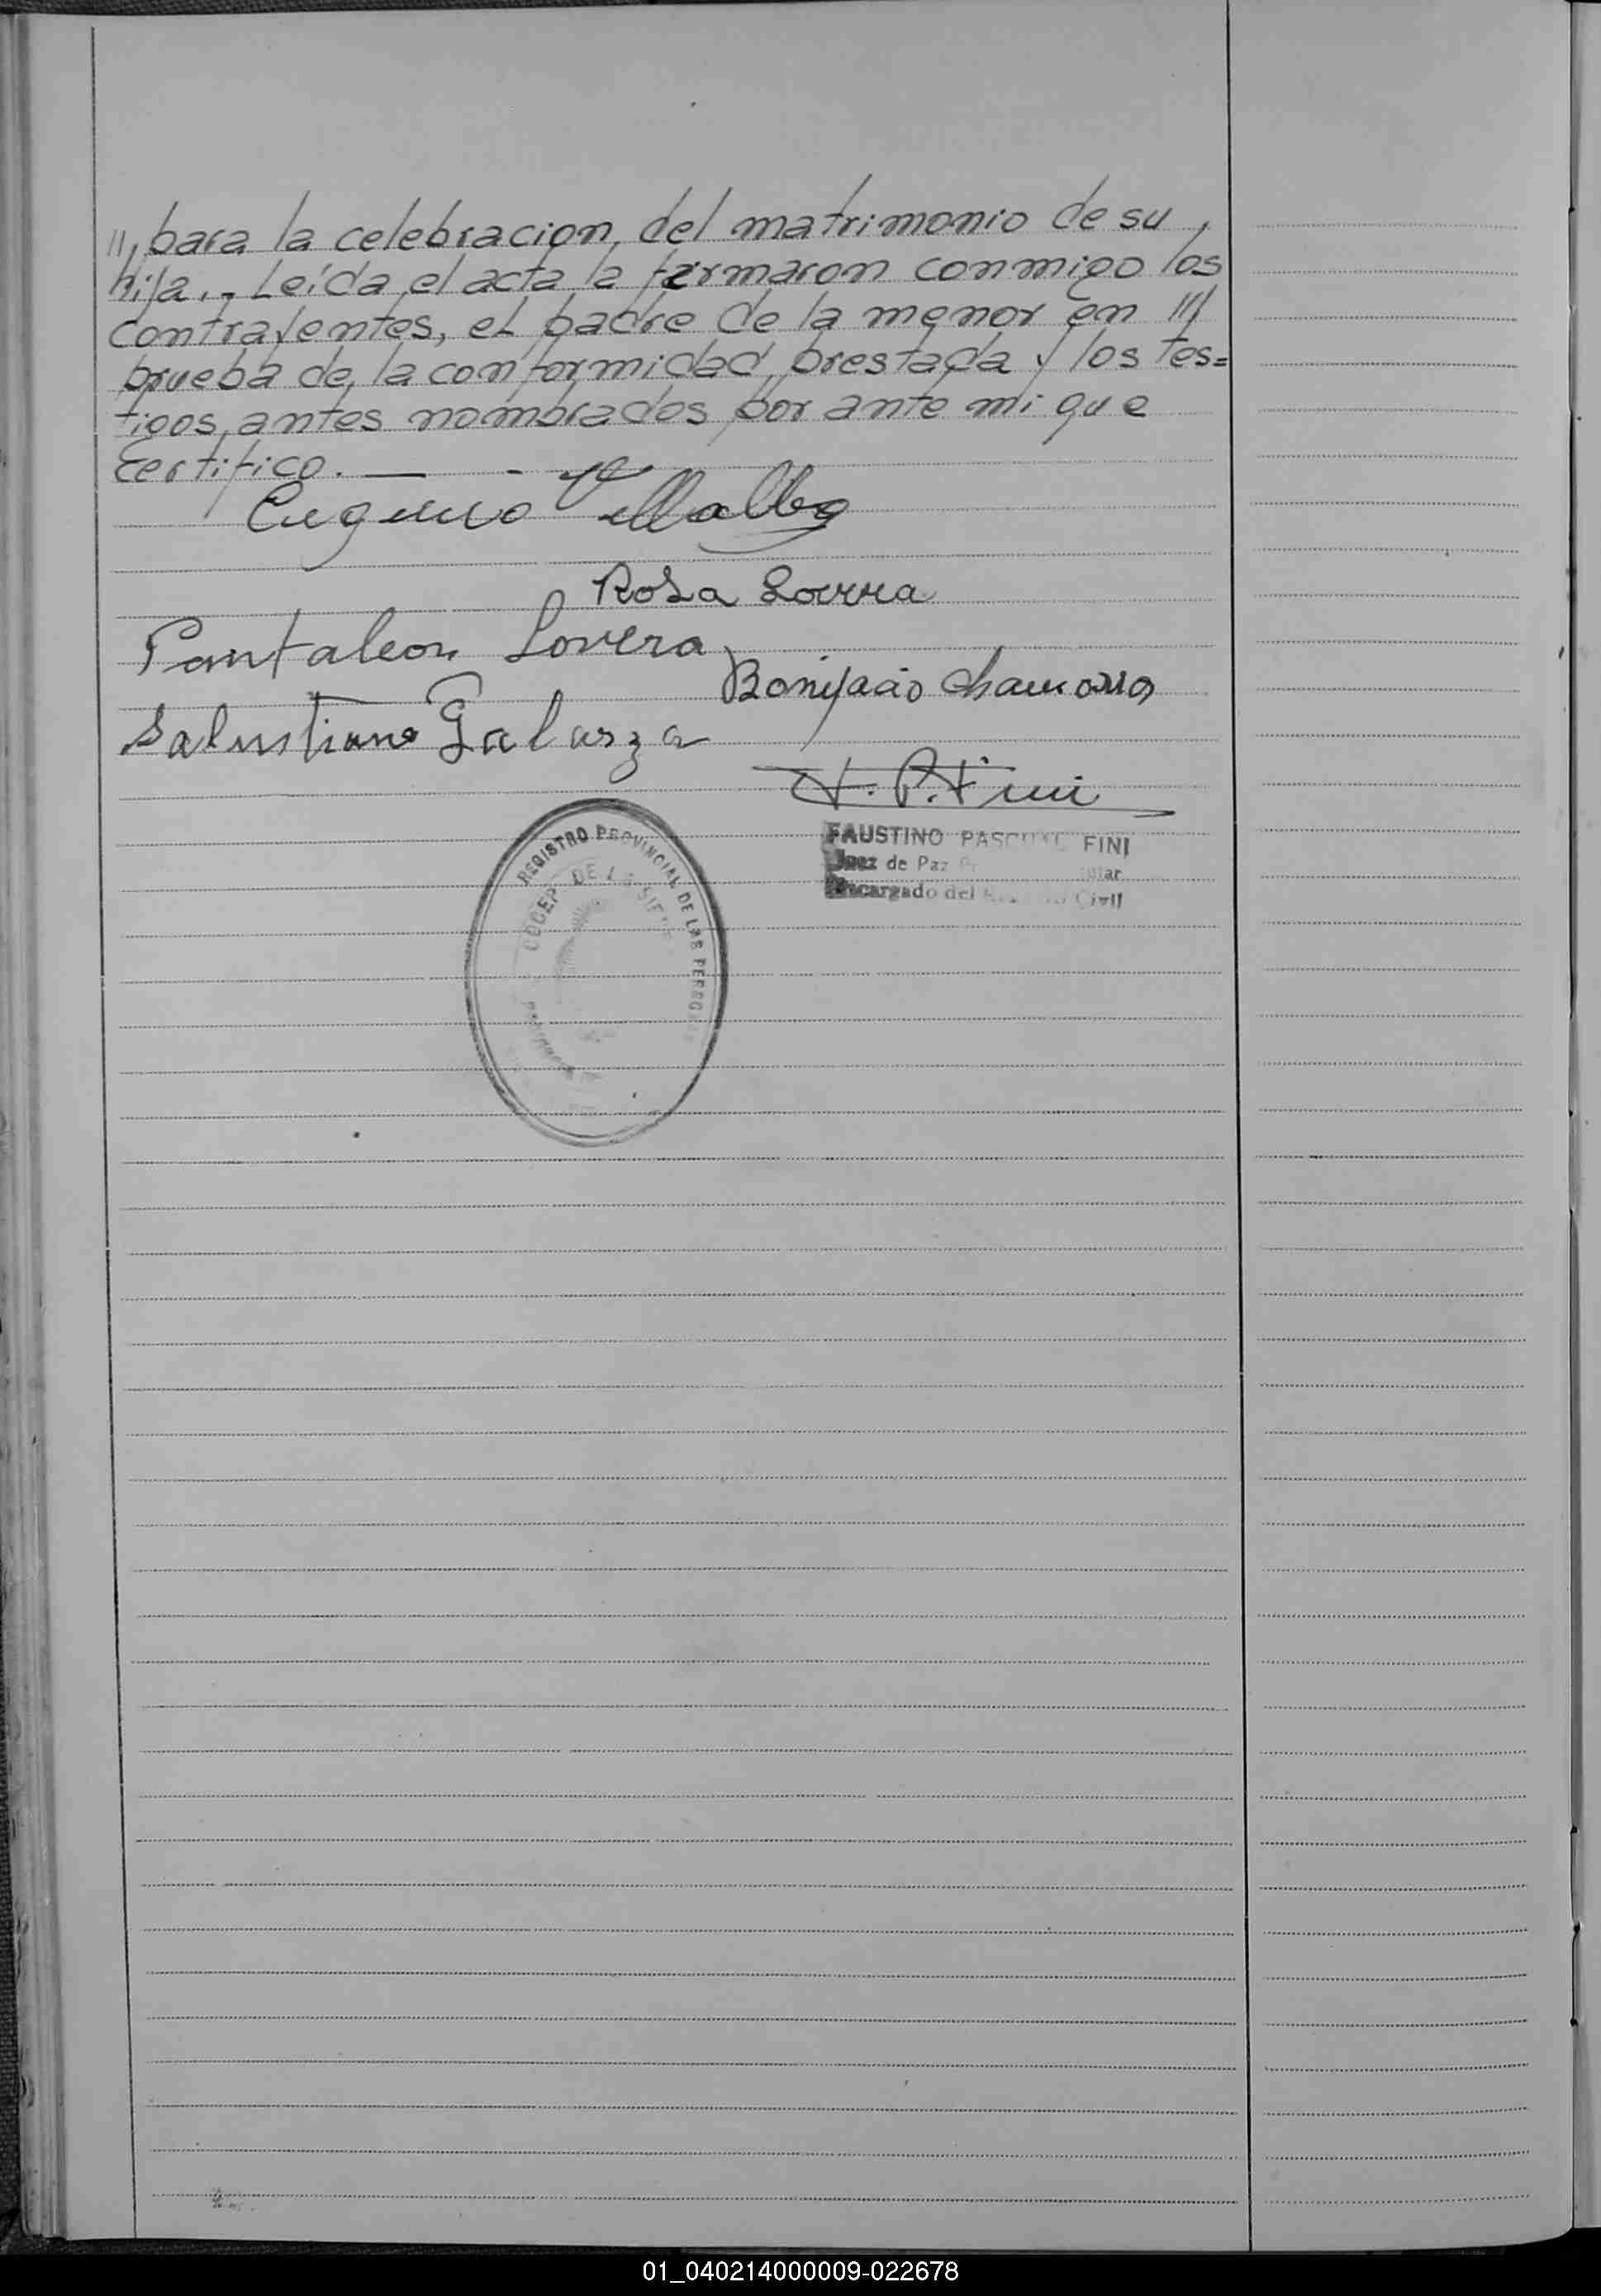 //, para la celebracion, del matrimonio de su,
hija.- Leída el acta la firmaron conmigo los
contrayentes, el padre de la menor en ///
prueba de la conformidad prestada y los tes=
tigos, antes nombrados por ante mi que
Certifico. — -
Eugenio Villalba
Rosa Lovera
Pantaleon Lovera
Bonifacio Chamorro
Salustiano Galarza
F. P. Fini
FAUSTINO PASCUAL FINI
Juez de Paz
Encargado del Civil
REGISTRO PROVINCIAL DE LAS PERSO
DE LA
01_040214000009-022678